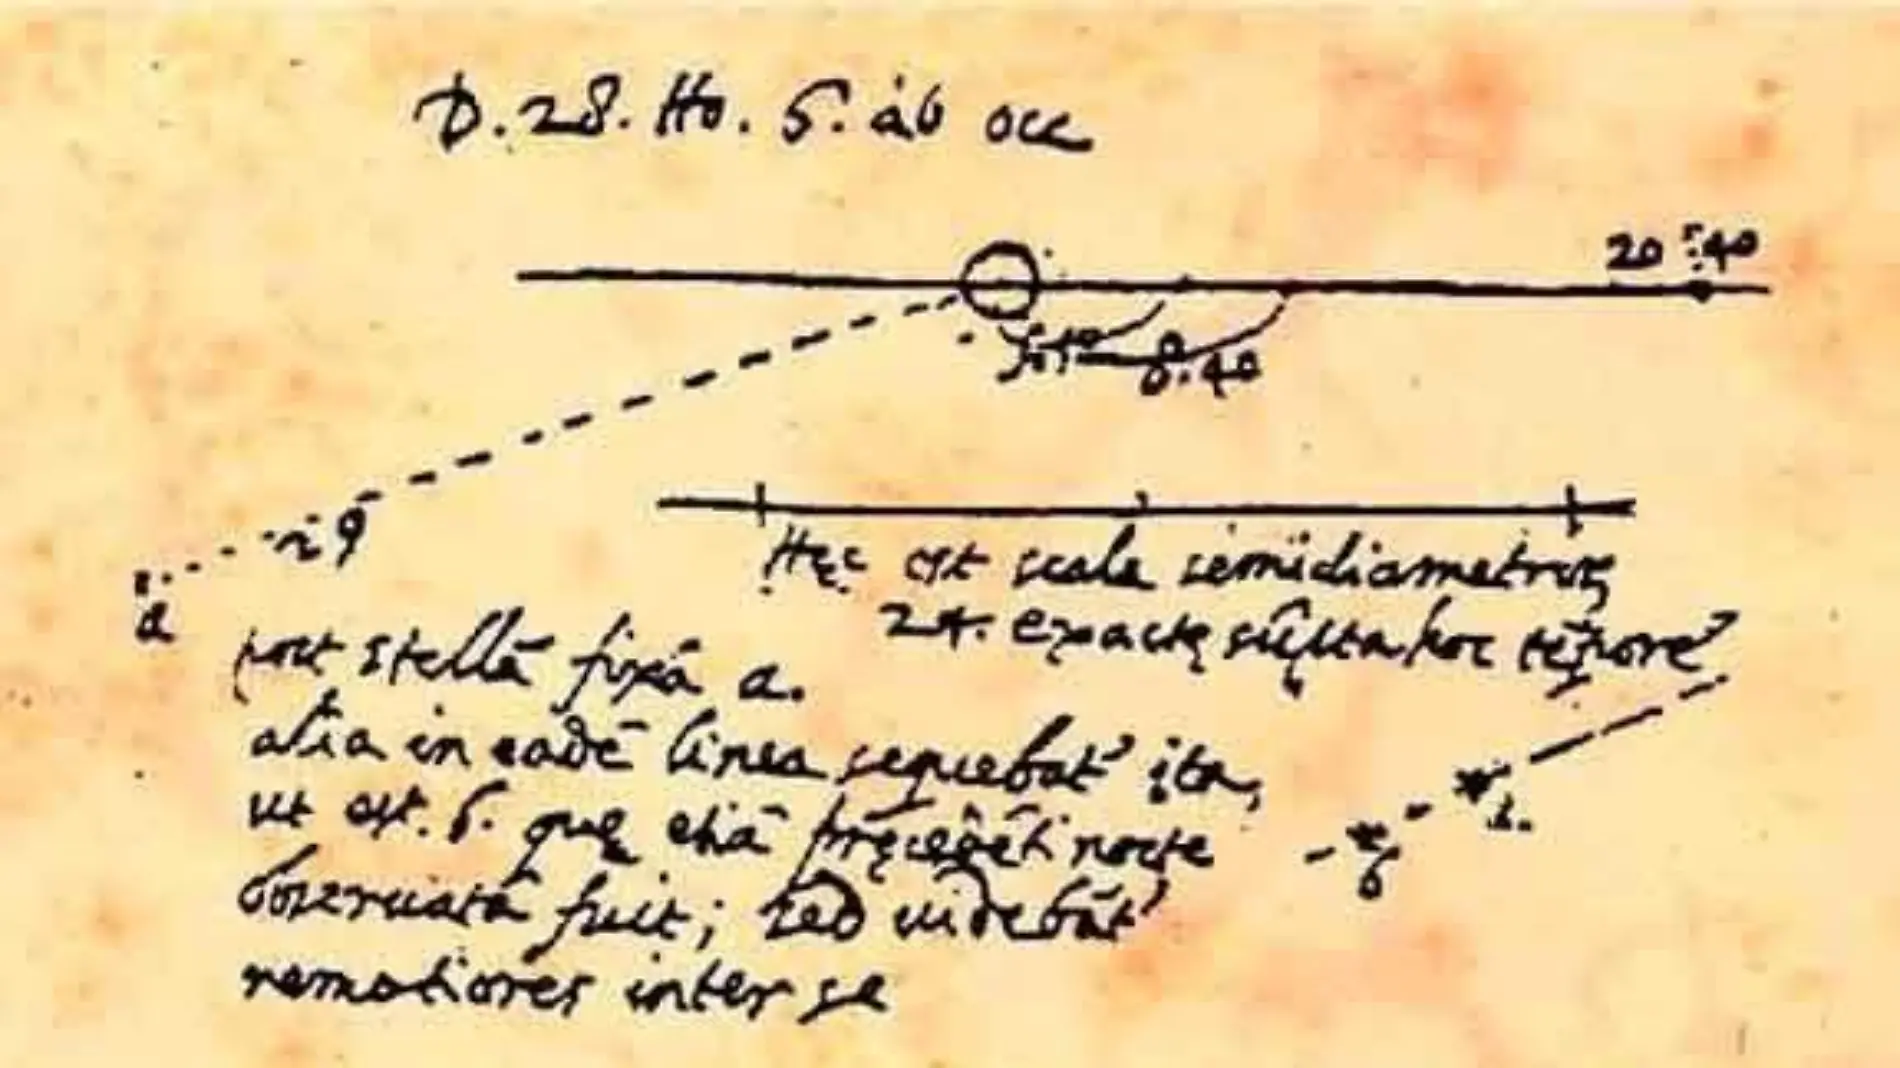 D. 28. Ho. 6. ab occ
20 r. 40
8. 40
29
a
Hęc est scala semidiametror
24. exactę sūpta hoc tēpore
post stellā fixā a.
alia in eadē linea sequebat' ita,
ut est. b. quę etiā pręcedēti nocte
observata fuit; sed videbāt'
remotiores inter se
b